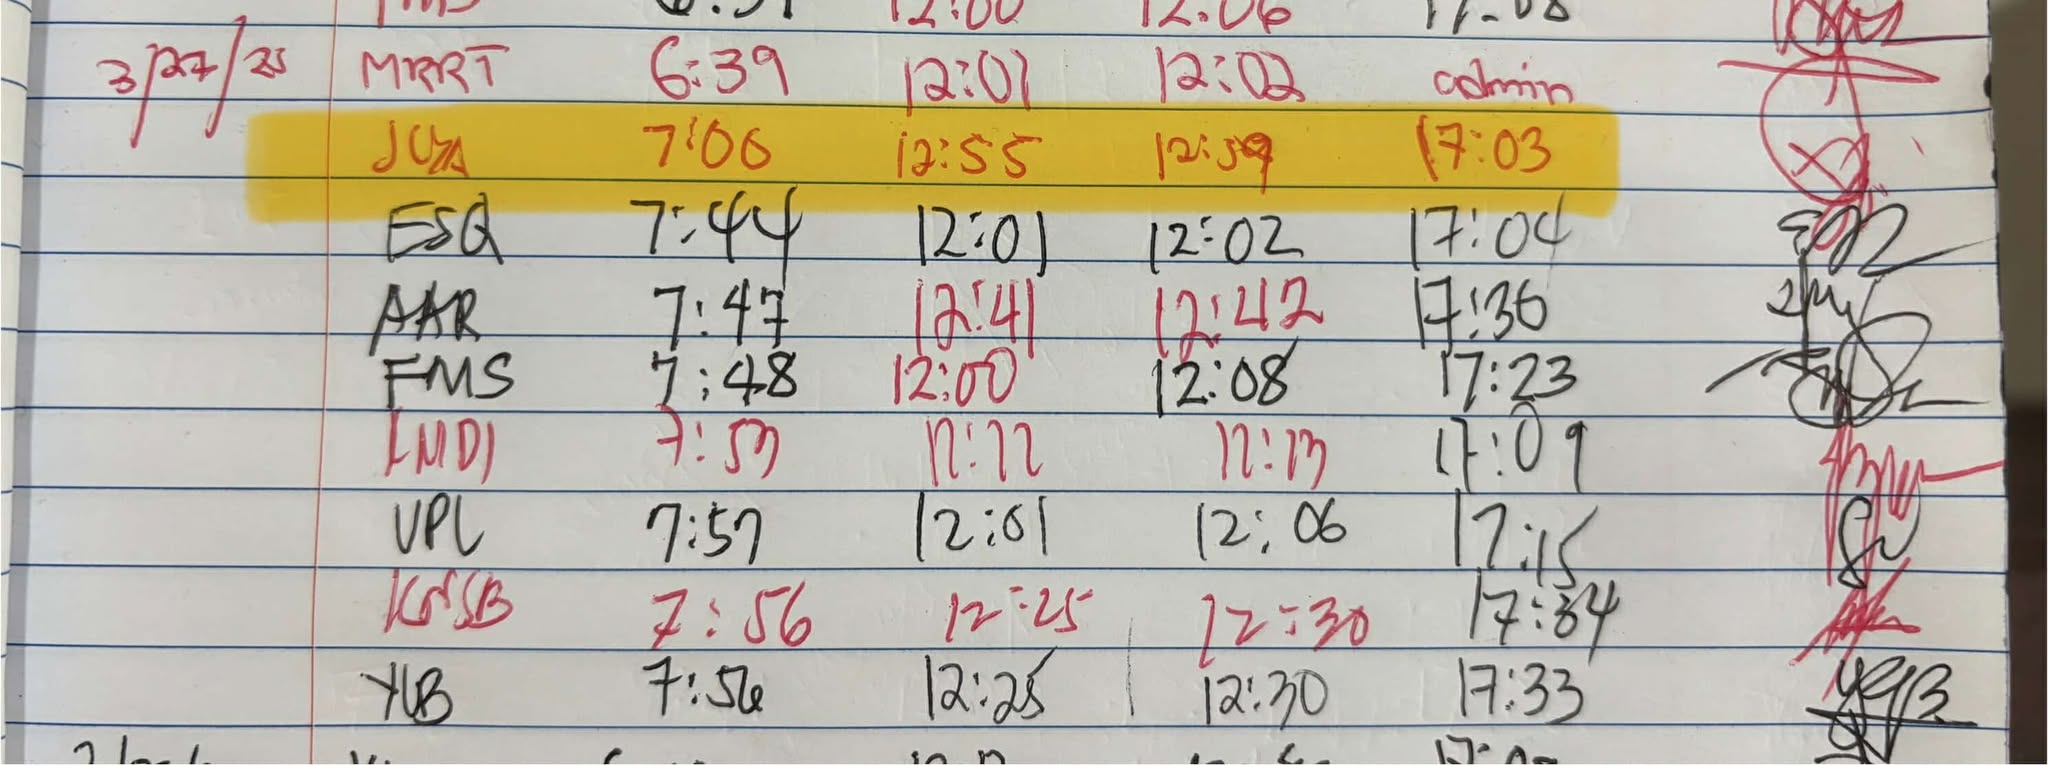 12:00 12:06 17:08
3/27/25 MRRT 6:39 12:01 12:02 admin
7:06 12:55 12:59 17:03
ESQ 7:44 12:01 12:02 17:04
AAR 7:47 12:41 12:42 17:36
FMS 7:48 12:00 12:08 17:23
LMDI 7:53 12:12 12:13 17:09
VPL 7:57 12:01 12:06 17:15
7:56 12:25 12:30 17:34
YLB 7:56 12:25 12:30 17:33